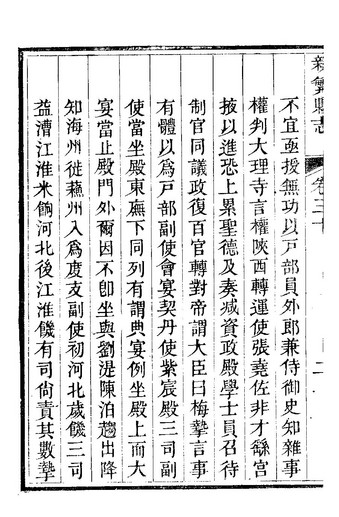 新繁縣志
卷三十
二
不宜亟授無功以戸部員外郎兼侍御史知雜事
權判大理寺言權陝西轉運使張堯佐非才繇宮
掖以進恐上累聖德及奏減資政殿學士員召待
制官同議政復百官轉對帝謂大臣曰梅摯言事
有體以爲戸部副使會宴契丹使紫宸殿三司副
使當坐殿東廡下同列有謂典宴例坐殿上而大
宴當止殿門外爾因不卽坐與劉湜陳泊趨出降
知海州徙蘇州入爲度支副使初河北歲饑三司
益漕江淮米餉河北後江淮饑有司尙責其數摯